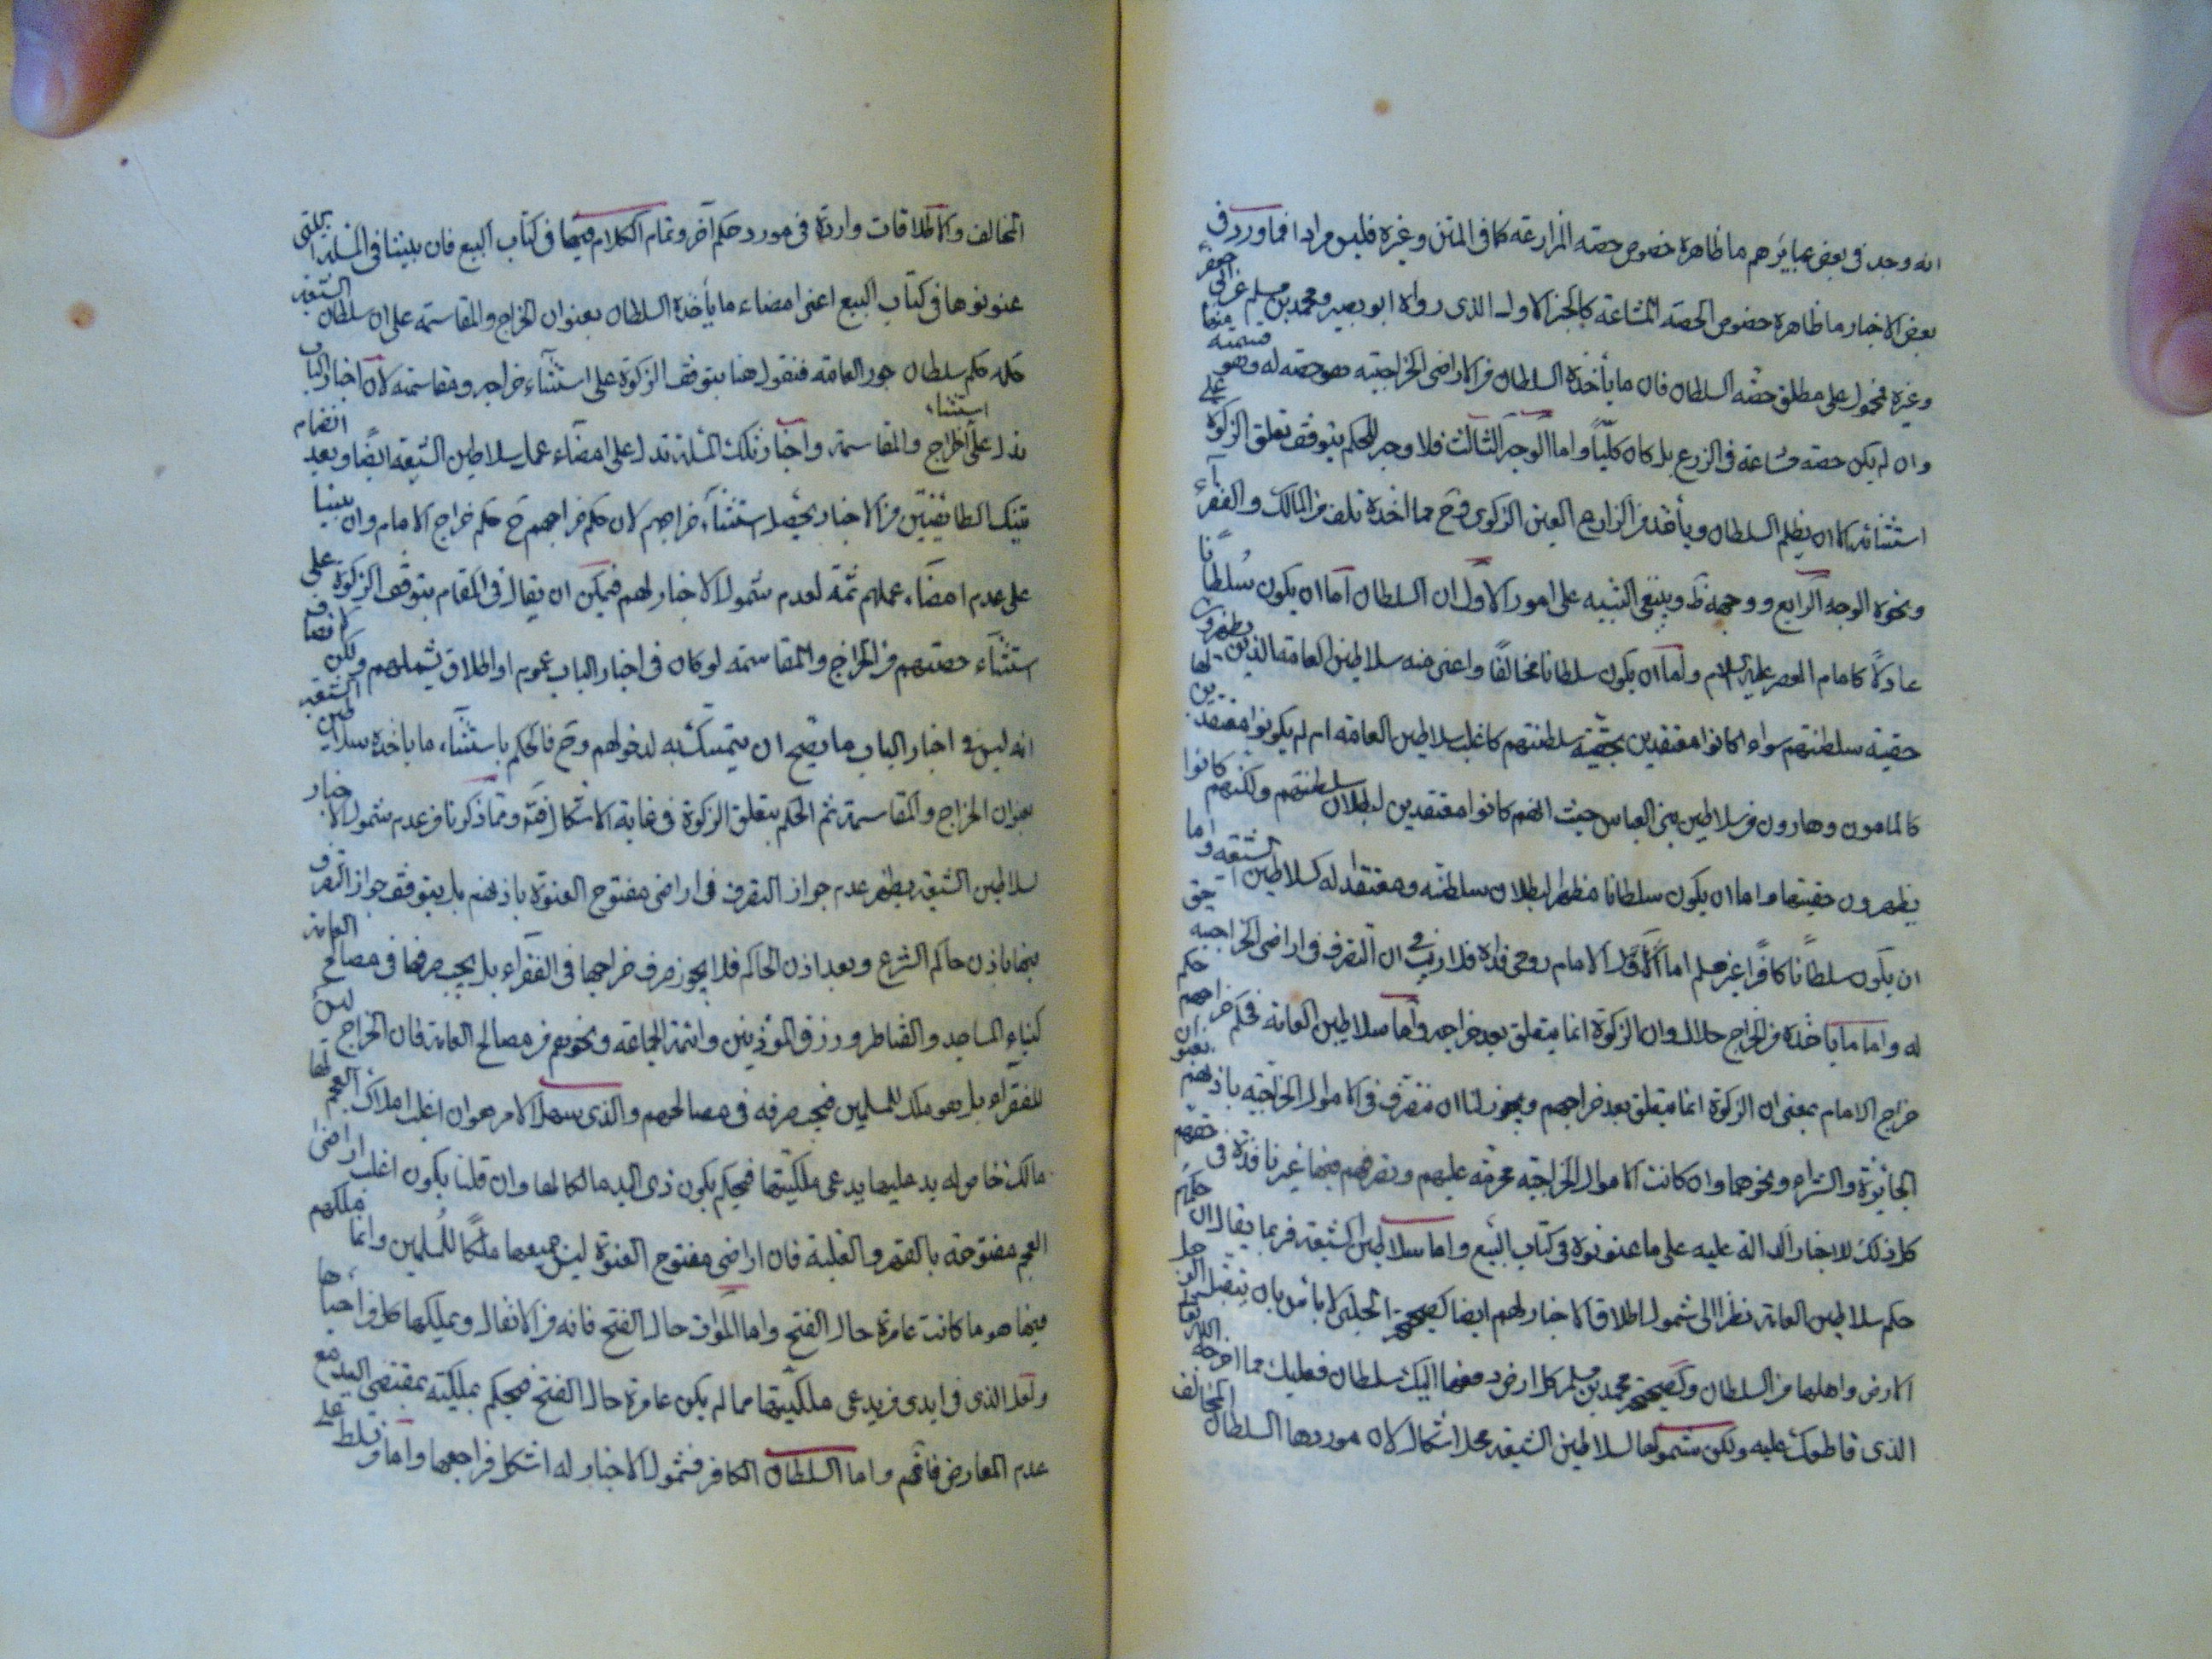 انه وجد فى بعض عبايرهم ما ظاهره خصوص حصه المزارعه كما فى المتن وغيره فليس مرادا فما ورد فى
بعض الاخبار ما ظاهره خصوص الحصه المشاعة كالخبر الاول الذى رواه ابو بصير ومحمد بن مسلم عن ابى جعفر
وغيره فمحمول على مطلق حصّه السلطان فان ما يأخذه السلطان من الاراضى الخراجيّه هو حصته له وهو قسمته منها
وان لم يكن حصته مشاعة فى الزرع بل كان كلّيًا واما الوجه الثالث فلا وجه للحكم بتوقف تعلق الزكوة على
استثنائه الا ان يظلم السلطان ويأخذ من الزارع العين الزكوى وح مما اخذه تلف من المالك والفقرآء
ونحوه الوجه الرابع ووجهه ظ وينبغى التنبيه على امور الاول ان السلطان اما ان يكون سُلطانًا
عادلًا كامام العصر عليه السلم واما ان يكون سلطانا مخالفًا واعنى منه سلاطين العامة الذين يظهرون
حقية سلطنتهم سواء كانوا معتقدين بحقيّة سلطنتهم كاغلب سلاطين العامه ام لم يكونوا معتقدين لها
كالمامون وهارون من سلاطين بنى العباس حيث انهم كانوا معتقدين لبطلان سلطنتهم ولكنهم كانوا
يظهرون حقيتها واما ان يكون سلطانا مظهرا لبطلان سلطنته ومعتقدا له كسلاطين الشيعه واما
ان يكون سلطانًا كافرًا غير مسلم اما الاول الامام روحى فداه فلا ريب فى ان التصرف فى اراضى الخراجيه حق
له واما ما يأخذه من الخراج حلال وان الزكوة انما يتعلق بعد خراجه واما سلاطين العامة فحكم خراجهم حكم
خراج الامام بمعنى ان الزكوة انما يتعلق بعد خراجهم ويجوز لنا ان نتصرف فى الاموال الخراجيّه باذنهم بعنوان
الجائزة والشراء ونحوهما وان كانت الاموال الخراجيّه محرمة عليهم وتصرفهم فيها غير نافذة فى حقهم
كل ذلك للاخبار الدالة عليه على ما عنونوه فى كتاب البيع واما سلاطين الشيعه فربما يقال ان حكمهم
حكم سلاطين العامة نظرا الى شمول اطلاق الاخبار لهم ايضا كصحيحة الحلبى لا بأس بان يتقبل الرجل
الارض واهلها من السلطان وكصحيحة محمد بن مسلم كل ارض دفعها اليك سلطان فعليك مما اخرجه الله تعالى
الذى قاطعك عليه ولكن شمولها لسلاطين الشيعه محل اشكال لان موردها السلطان المخالف
المخالف والاطلاقات واردة فى مورد حكم آخر وتمام الكلام فيها فى كتاب البيع فان بنينا فى المسئلة التى
عنونوها فى كتاب البيع اعنى امضاء ما يأخذه السلطان بعنوان الخراج والمقاسمه على ان سلطان الشيعه
حكمه حكم سلطان جور العامه فنقول هنا بتوقف الزكوة على استثنآء خراجه ومقاسمته لان اخبار الباب
تدل على استثناء الخراج والمقاسمة واخبار تلك المسئلة تدل على امضآء عمل سلاطين الشيعه ايضًا وبعد انضمام
تينك الطايفتين من الاخبار يحصل استثنآء خراجهم لان حكم خراجهم ح حكم خراج الامام وان بنينا
على عدم امضآء عملهم ثمة لعدم شمول الاخبار لهم فيمكن ان يقال فى المقام بتوقف الزكوة على
استثنآء حصتهم من الخراج والمقاسمه لو كان فى اخبار الباب عموم او اطلاق يشملهم ولكن الانصاف
انه ليس فى اخبار الباب ما يصح ان يتمسك به لدخولهم وح فالحكم باستثنآء ما ياخذه سلاطين الشيعه
بعنوان الخراج والمقاسمة ثم الحكم بتعلق الزكوة فى غاية الاشكال ومما ذكرنا من عدم شمول الاخبار
لسلاطين الشيعه يظهر عدم جواز التصرف فى اراضى مفتوح العنوة باذنهم بل يتوقف جواز التصرف
فيها باذن حاكم الشرع وبعد اذن الحاكم فلا يجوز صرف خراجها فى الفقرآء بل يجب صرفها فى مصالح العامة
كبناء المساجد والقناطر ورزق المؤذنين وائمة الجماعة ونحوهم من مصالح العامة فان الخراج ليس
للفقرآء بل هو ملك للمسلمين فيجب صرفه فى مصالحهم والذى يسهل الامر هو ان اغلب املاك العجم لها
مالك خاص له يد عليها يدعى ملكيتها فيحكم بكون ذى اليد مالكا لها وان قلنا بكون اغلب اراضى
العجم مفتوحة بالقهر والغلبة فان اراضى مفتوح العنوة ليس جميعها ملكًا للمسلمين وانما ملكهم
فيها هو ما كانت عامرة حال الفتح واما الموات حال الفتح فانه من الانفال ويملكها كل من احياها
ولعل الذى فى ايدى من يدعى ملكيتها مما لم يكن عامرة حال الفتح فيحكم بملكيته بمقتضى اليد مع
عدم المعارض فافهم واما السلطان الكافر فشمول الاخبار له اشكل فراجعها واما